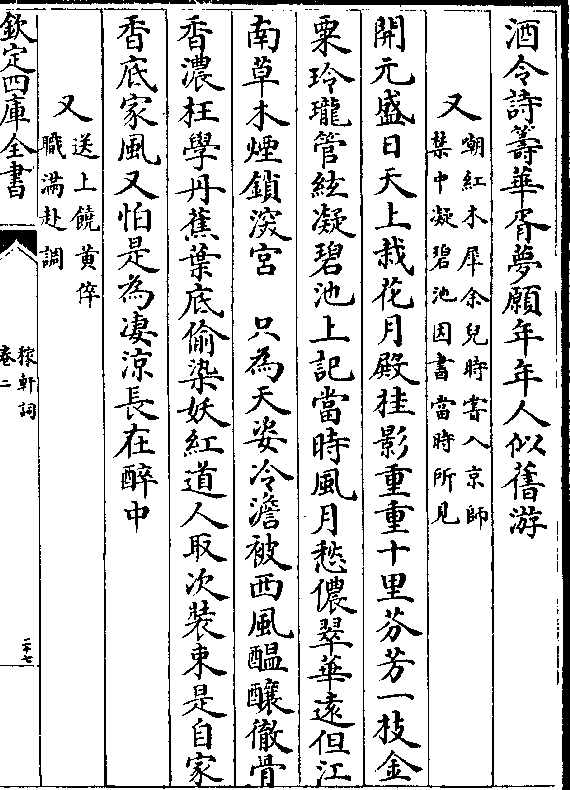 酒令詩籌華胥夢願年年人似舊游
又
嘲紅木犀余兒時嘗入京師
禁中凝碧池因書當時所見
開元盛日天上栽花月殿桂影重重十里芬芳一枝金
粟玲瓏管絃凝碧池上記當時風月愁儂翠華遠但江
南草木煙鎖深宮　只為天姿冷澹被西風醖釀徹骨
香濃枉學丹蕉葉底偷染妖紅道人取次裝束是自家
香底家風又怕是為凄涼長在醉中
又
送上饒黄倅
職滿赴調
欽定四庫全書
稼軒詞
卷二
二十七